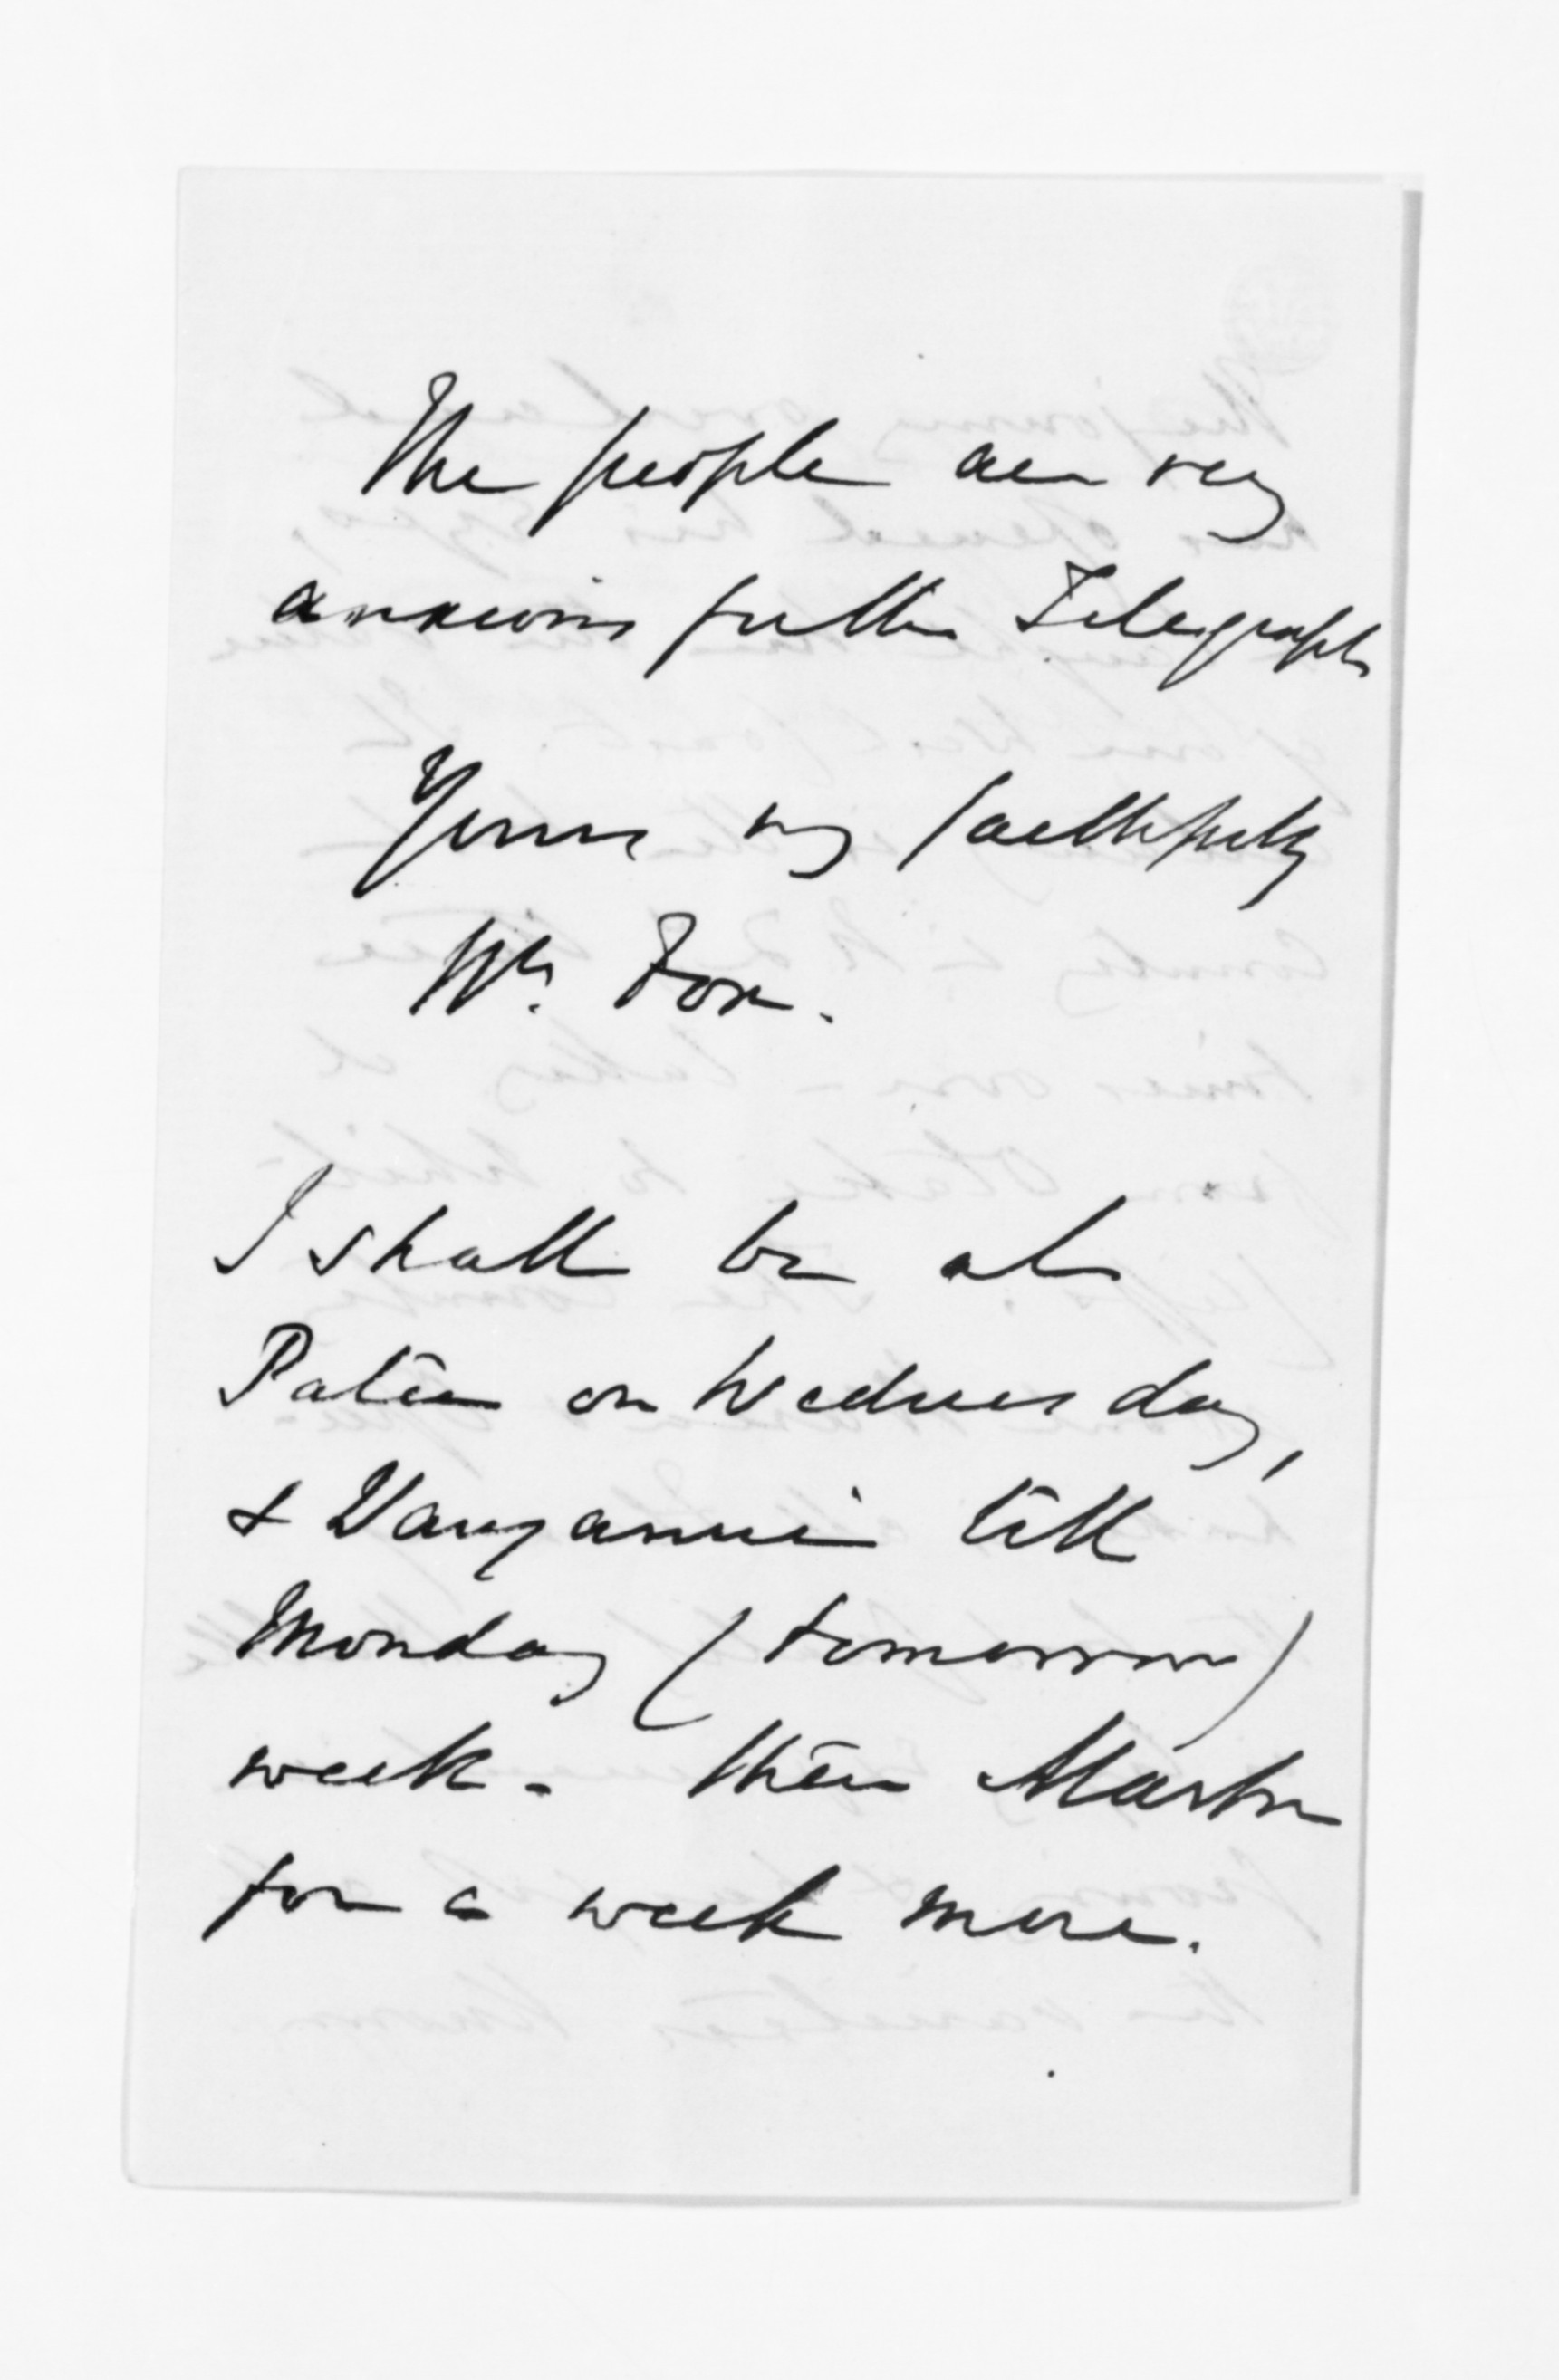 The people are very
anxious for the Telegraph
Yours very faithfully
Wm. Fox.
I shall be at
Patea on Wednesday,
& Wanganui till
Monday (tomorrow)
week - then Marton
for a week more.